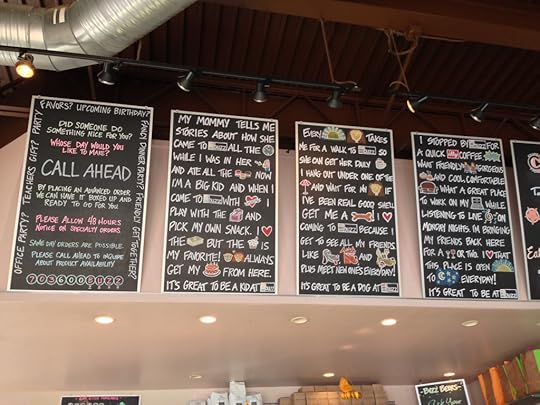 FAVORS? UPCOMING BIRTHDAY?
OFFICE PARTY? TEACHERS GIFT? PARTY
FANCY DINNER PARTY? FRIENDLY GET TOGETHER?
DID SOMEONE DO
SOMETHING NICE FOR YOU?
WHOSE DAY WOULD YOU
LIKE TO MAKE?
CALL AHEAD
BY PLACING AN ADVANCED ORDER
WE CAN HAVE IT BOXED UP AND
READY TO GO FOR YOU
PLEASE ALLOW 48 HOURS
NOTICE ON SPECIALTY ORDERS
SAME DAY ORDERS ARE POSSIBLE
PLEASE CALL AHEAD TO INQUIRE
ABOUT PRODUCT AVAILABILITY
703600BUZZ
MY MOMMY TELLS ME
STORIES ABOUT HOW SHE
CAME TO BUZZ ALL THE
WHILE I WAS IN HER
AND ATE ALL THE NOW
I'M A BIG KID AND WHEN I
COME TO BUZZ WITH I
PLAY WITH THE AND
PICK MY OWN SNACK. I
THE BUT THE IS
MY FAVORITE! ALWAYS
GET MY FROM HERE.
IT'S GREAT TO BE A KID AT BUZZ
EVERY TAKES
ME FOR A WALK TO BUZZ SO
SHE CAN GET HER DAILY
I HANG OUT UNDER ONE OF THE
AND WAIT FOR MY IF
I'VE BEEN REAL GOOD SHE'LL
GET ME A I
COMING TO BUZZ BECAUSE I
GET TO SEE ALL MY FRIENDS
LIKE AND
PLUS MEET NEW ONES EVERYDAY!
IT'S GREAT TO BE A DOG AT BUZZ
I STOPPED BY BUZZ FOR
A QUICK COFFEE.
WHAT FRIENDLY GORGEOUS
AND COOL, COMFORTABLE
WHAT A GREAT PLACE
TO WORK ON MY WHILE
LISTENING TO LIVE ON
MONDAY NIGHTS. I'M BRINGING
MY FRIENDS BACK HERE
FOR A OR TWO. I THAT
THIS PLACE IS OPEN
TO EVERYDAY!
IT'S GREAT TO BE AT BUZZ
BUZZ BEERS